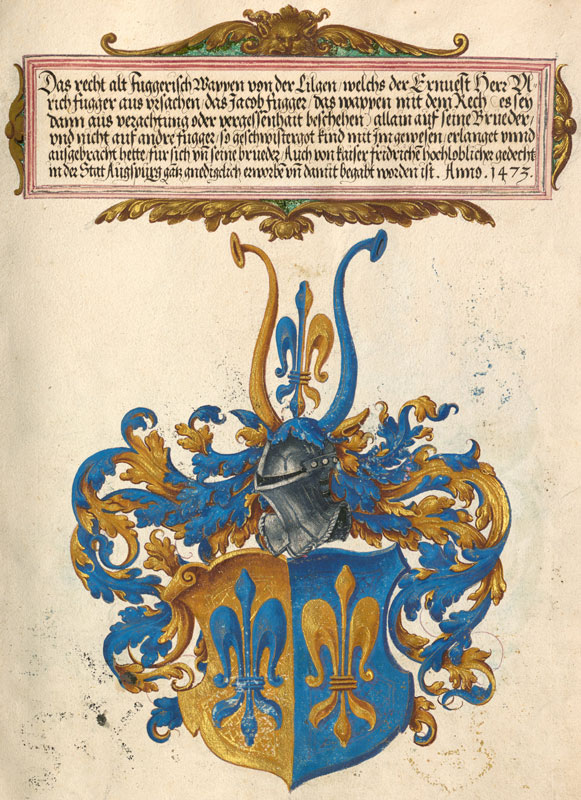 Das recht alt Fuggerisch Wappen von der Lilgen / welchs der Ernuest Herr Vl-
rich fugger aus vrsachen, das Jacob fugger / das wappen mit dem Rech es sey
dann aus verachtung oder vergessenhait beschehen / allain auf seine Brueder /
vnd nicht auf andre fugger / so geschwistergot kind mit jm gewesen / erlanget vnnd
ausgebracht hette / fur sich vnd seine brueder, Auch von kaiser fridrichen hochloblicher gedecht
in der Stat Augspurg gantz gnedigelich erworben vnd damit begabt worden ist. Anno. 1473.